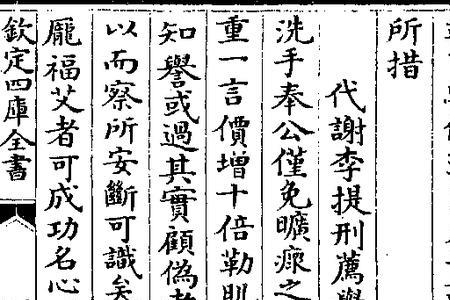 所措
代謝李提刑薦舉
洗手奉公僅免曠瘝之
重一言價增十倍勒
知譽或過其實顧偽
以而察所安斷可識矣
厖福艾者可成功名心
欽定四庫全書